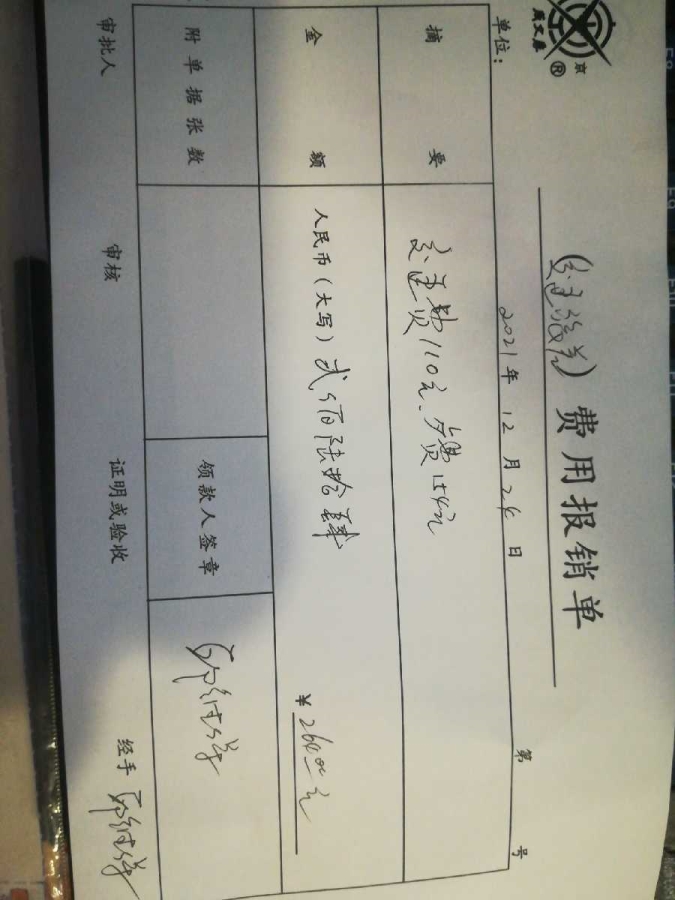 京
®
费用报销单
单位：
2021年12月24日 第 号
摘要 交通费110元、餐费154元
金额 人民币（大写）贰佰陆拾肆 ¥264.00元
附单据张数 领款人签章
审批人 审核 证明或验收 经手